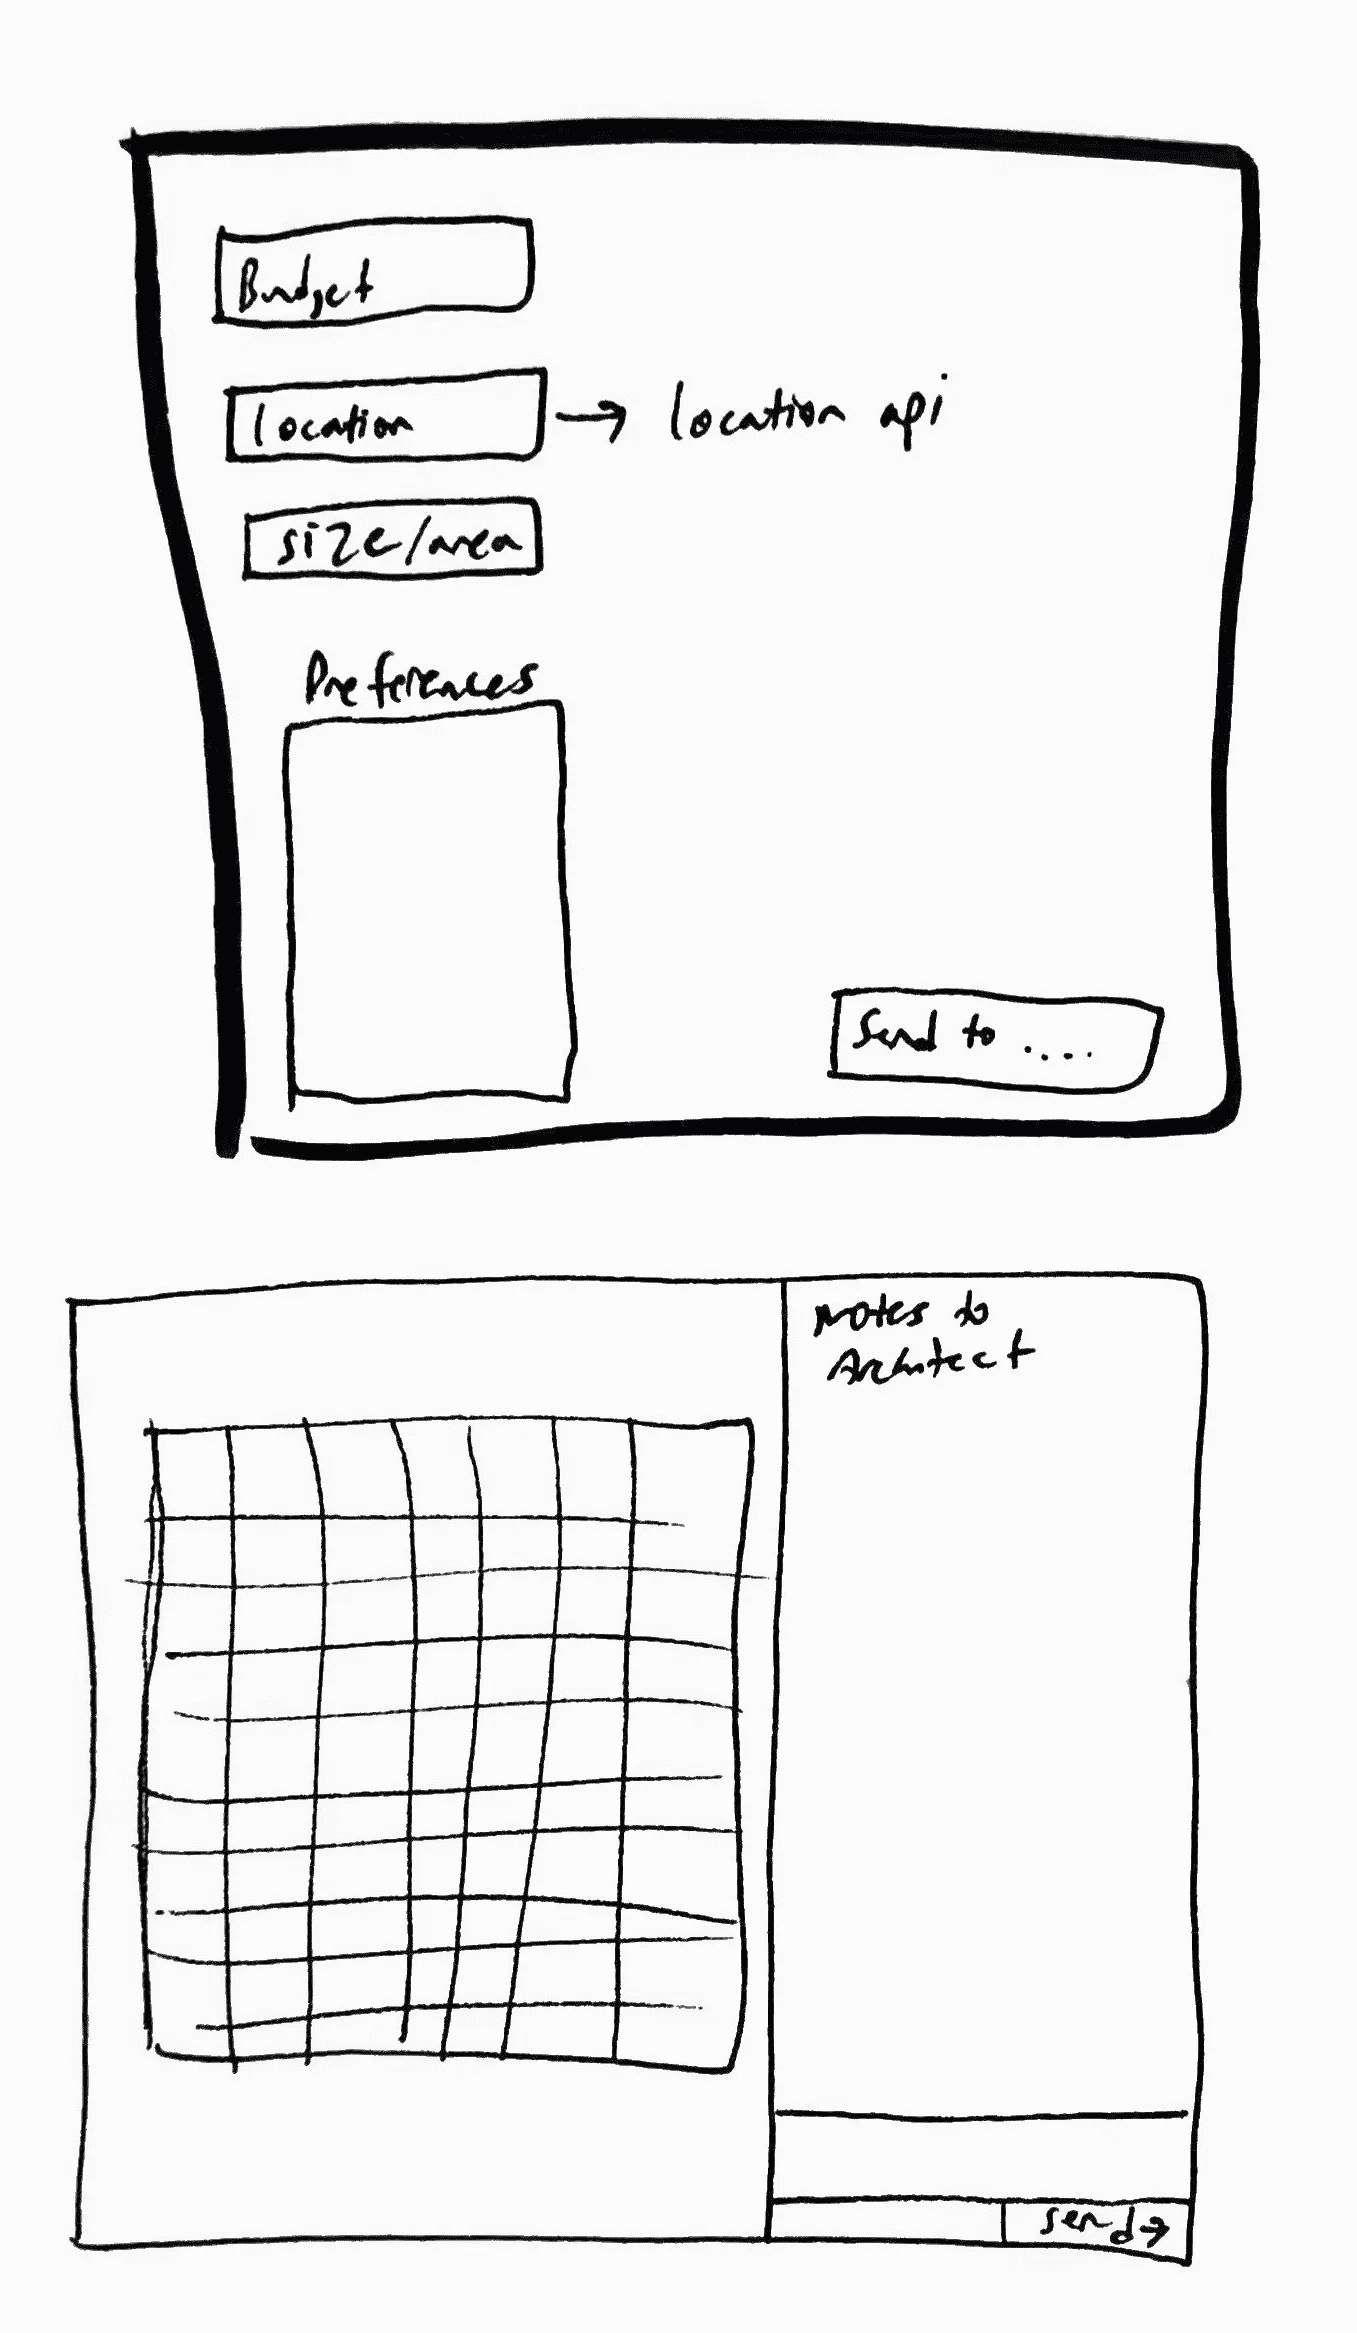 Budget
location → location api
size/area
Preferences
Send to ....
Notes to
Architect
send →